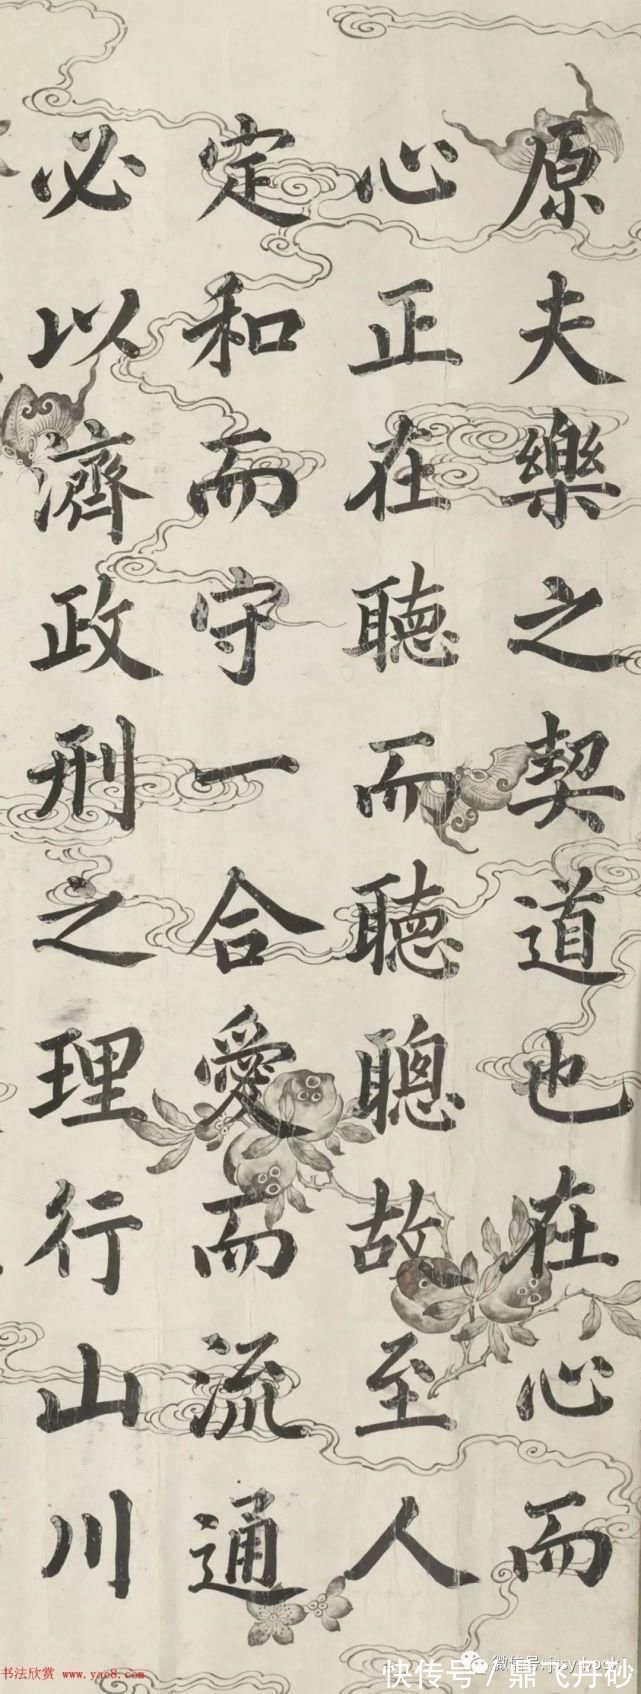 原夫樂之契道也在心而
心正在聴而聴聰故至人
定和而守一合愛而流通
必以濟政刑之理行山川
书法欣赏 www.yac8.com
快传号/鼎飞丹砂